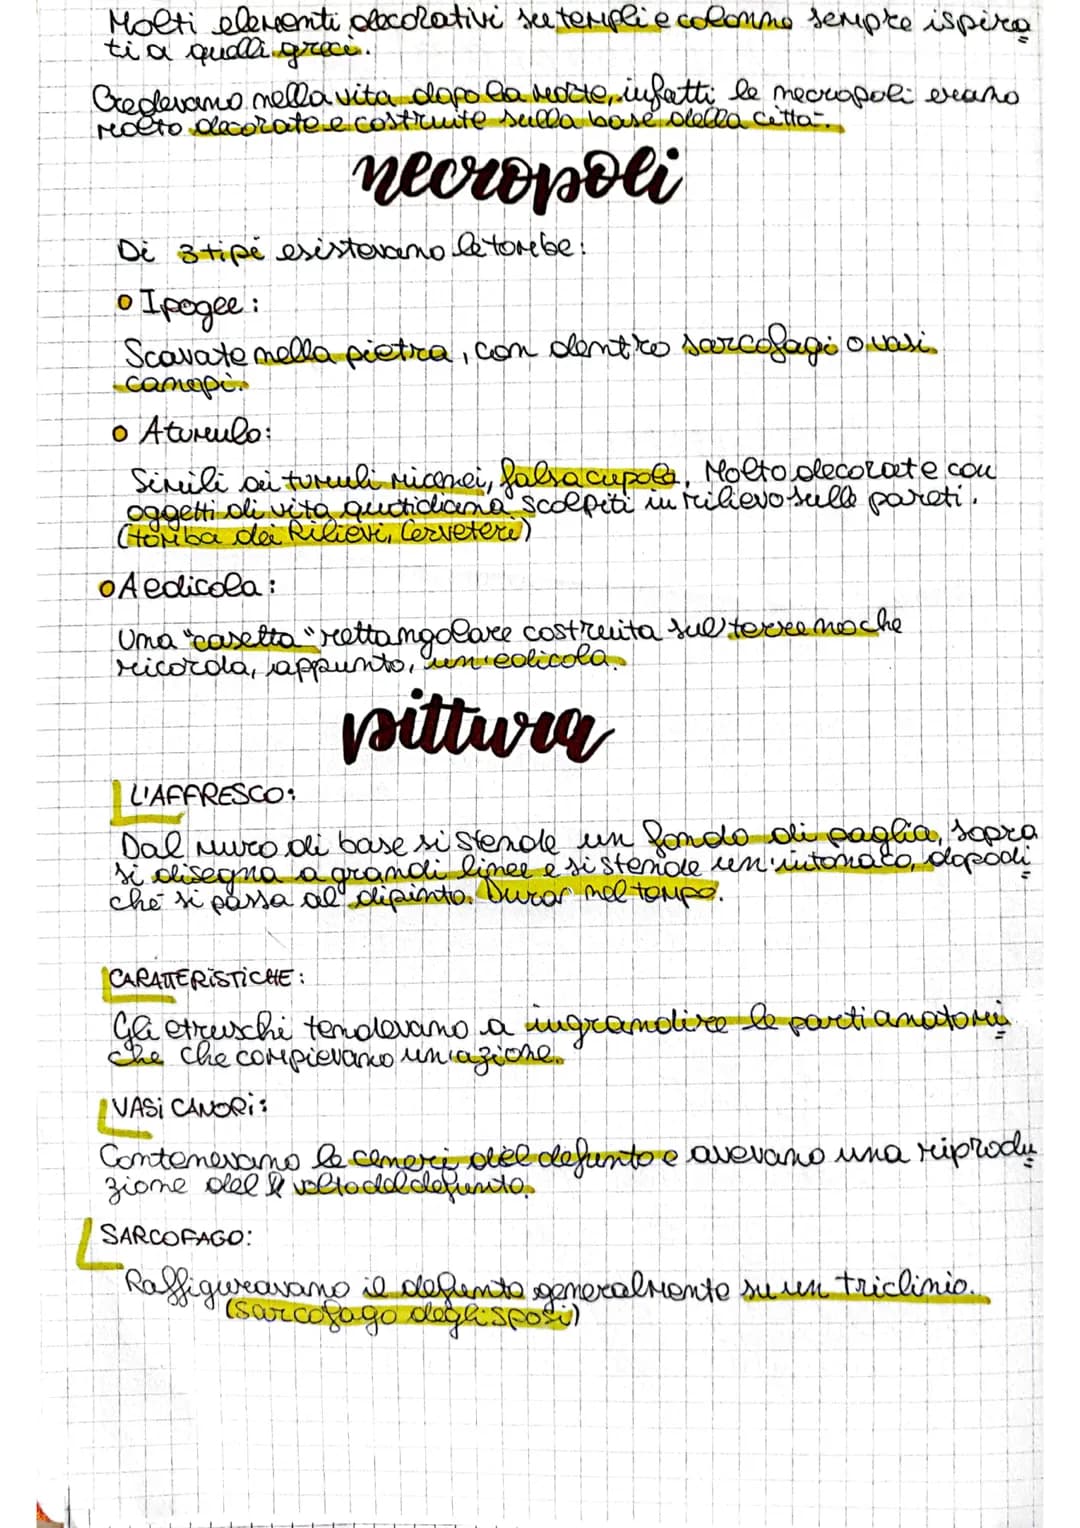 Molti elementi decorativi su templi e colonne sempre ispira
ti a quelli greci.
Credevano nella vita dopo la morte, infatti le necropoli erano
molto decorate e costruite sulla base della città.
necropoli
Di 3 tipi esistevano le tombe:
Ipogee:
Scavate nella pietra, con dentro sarcofagi o vasi
canopi.
A tumulo:
Simili ai tumuli micenei, falsa cupola. Molto decorate con
oggetti di vita quotidiana scolpiti in rilievo sulle pareti.
(tomba dei Rilievi, Cerveteri)
A edicola:
Una "casetta" rettangolare costruita sul terreno che
ricorda, appunto, un'edicola.
pittura
L'AFFRESCO:
Dal muro di base si stende un fondo di paglia, sopra
si disegna a grandi linee e si stende un'intonaco, dopodi
che si passa al dipinto. Durar nel tempo.
CARATTERISTICHE:
Gli etruschi tendevano a ingrandire le parti anatomi
che che compievano un'azione.
VASI CANORI:
Contenevano le ceneri del defunto e avevano una riprodu
zione del volto del defunto.
SARCOFAGO:
Raffiguravano il defunto generalmente su un triclinio.
(sarcofago degli sposi)